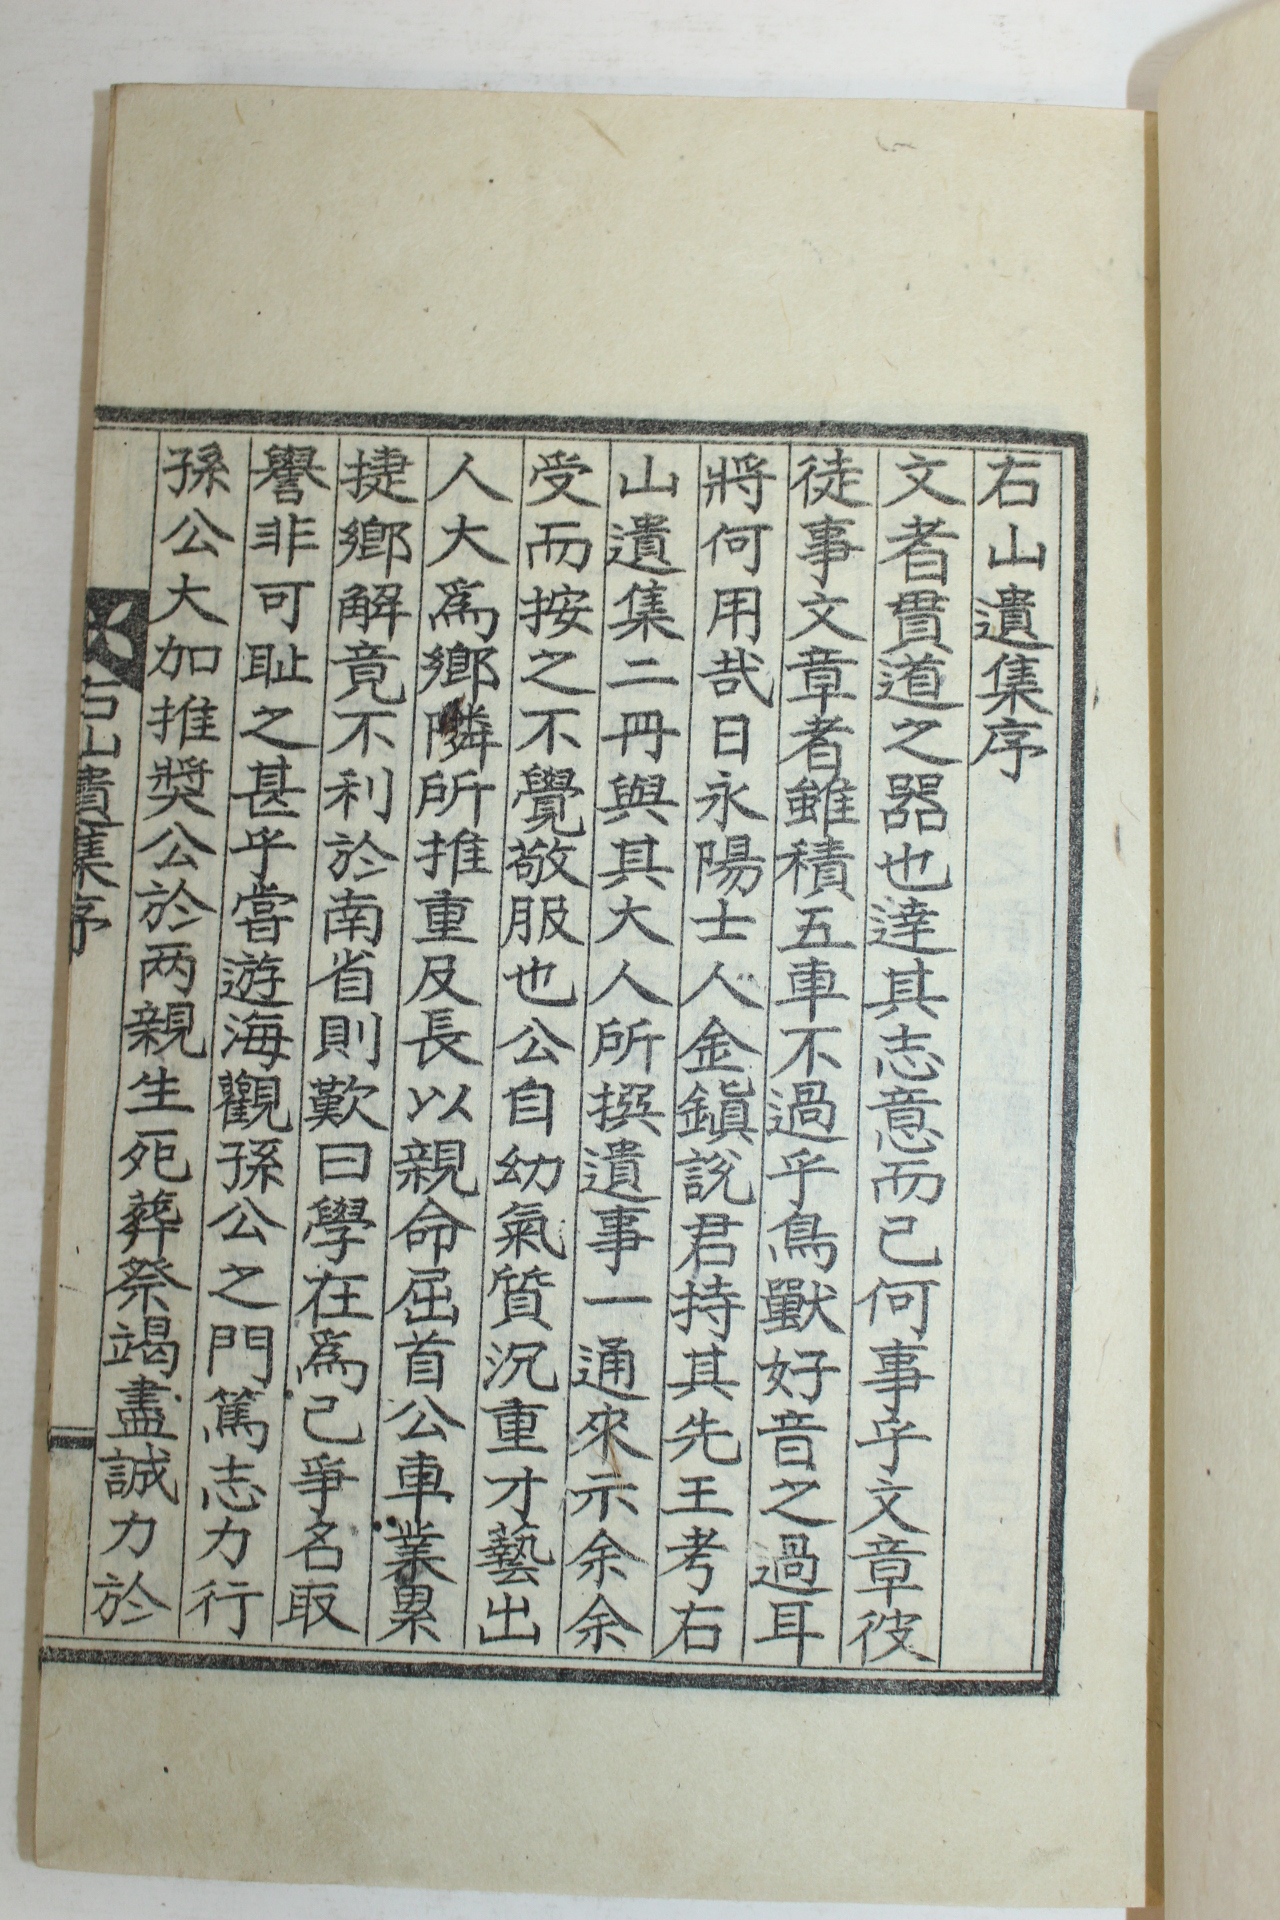 右山遺集序
文者貫道之器也達其志意而已何事乎文章彼
徒事文章者雖積五車不過乎鳥獸好音之過耳
將何用哉日永陽士人金鎭說君持其先王考右
山遺集二冊與其大人所撰遺事一通來示余余
受而按之不覺敬服也公自幼氣質沉重才藝出
人大爲鄉隣所推重及長以親命屈首公車業累
捷鄉解竟不利於南省則歎曰學在爲己爭名取
譽非可恥之甚乎嘗遊海觀孫公之門篤志力行
孫公大加推奬公於两親生死葬祭竭盡誠力於
右山遺集序